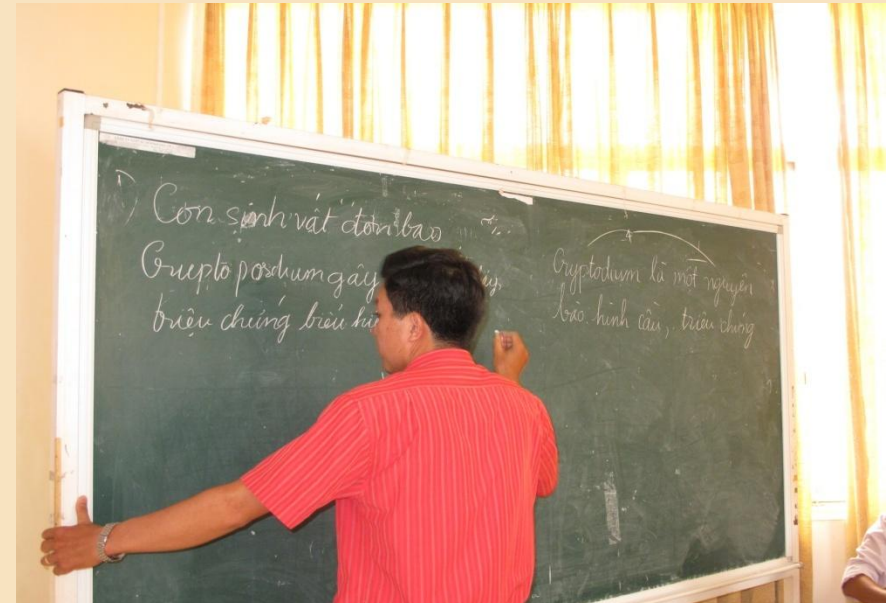 1) Con sinh vật đơn bào
Crypto posdium gây
triệu chứng biểu hi
Cryptodium là một nguyên
bào hình cầu, triệu chứng